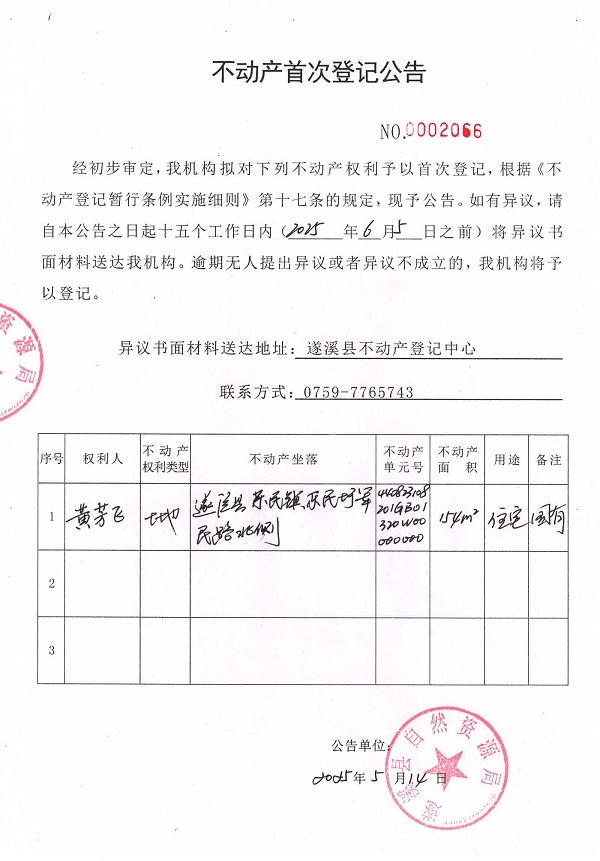 不动产首次登记公告
NO.0002066
经初步审定，我机构拟对下列不动产权利予以首次登记，根据《不
动产登记暂行条例实施细则》第十七条的规定，现予公告。如有异议，请
自本公告之日起十五个工作日内（2025年6月5日之前）将异议书
面材料送达我机构。逾期无人提出异议或者异议不成立的，我机构将予
以登记。
异议书面材料送达地址：遂溪县不动产登记中心
联系方式：0759-7765743
序号 权利人 不动产权利类型 不动产坐落 不动产单元号 不动产面积 用途 备注
1 黄芳飞 土地 遂溪县乐民镇乐民圩军 440823108
民路北侧 201GB01
320W00
000000
154m² 住宅 国有
2
3
公告单位：
2025年5月14日
遂溪县自然资源局
资源局